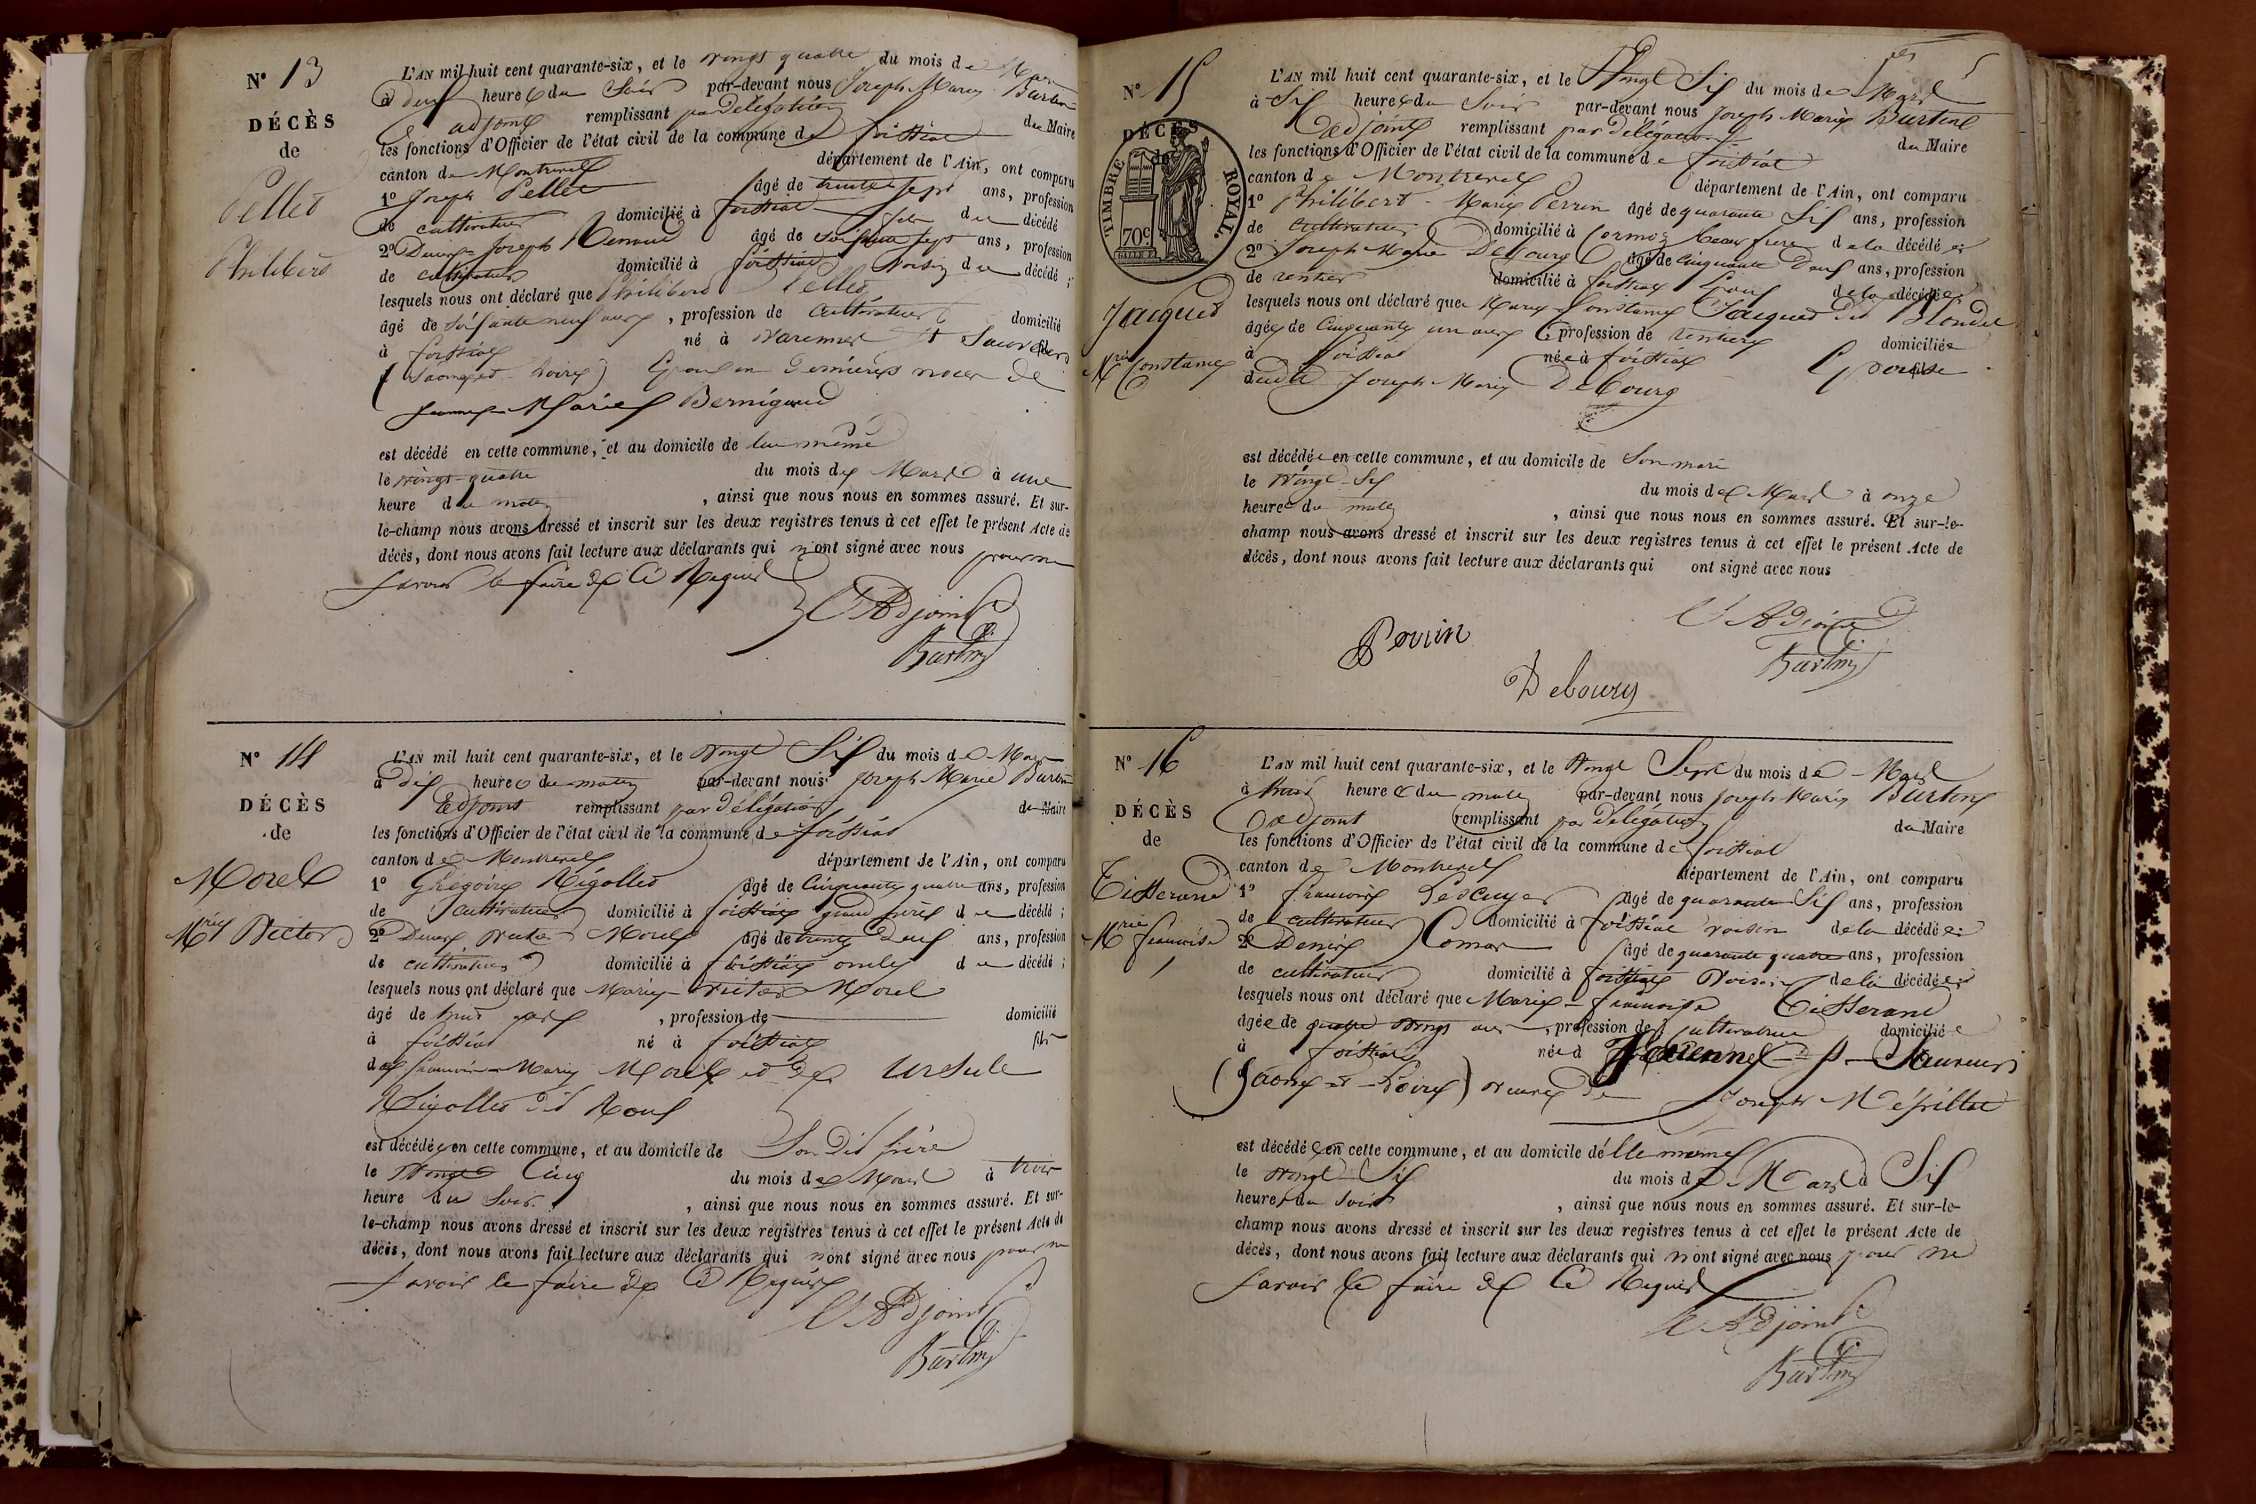 N° 13
DÉCÈS
de
Pellet
Philibert
L'AN mil huit cent quarante-six, et le vingt quatre du mois de Mars
à deux heures du Soir par-devant nous Joseph Marie Burtin
adjoint remplissant par Délégation du Maire
les fonctions d'Officier de l'état civil de la commune de foissiat
canton de Montrevel département de l'Ain, ont comparu
1° Joseph Pellet âgé de trente sept ans, profession
de cultivateur domicilié à foissiat fils du décédé
2° Denis Joseph Renaud âgé de soixante sept ans, profession
de cultivateur domicilié à foissiat voisin du décédé ;
lesquels nous ont déclaré que Philibert Pellet
âgé de soixante neuf ans, profession de cultivateur domicilié
à foissiat né à varennes St Sauveur
(Saone et Loire) Epoux en dernières noces de
Jeanne Marie Bernigaud
est décédé en cette commune, et au domicile de lui même
le vingt-quatre du mois de Mars à une
heure du matin, ainsi que nous nous en sommes assuré. Et sur-
le-champ nous avons dressé et inscrit sur les deux registres tenus à cet effet le présent Acte de
décès, dont nous avons fait lecture aux déclarants qui n'ont signé avec nous pour ne
savoir le faire de ce Requis
L'Adjoint
Burtin
N° 14
DÉCÈS
de
Morel
Mrie Victor
L'AN mil huit cent quarante-six, et le vingt Six du mois de Mars
à dix heures du matin par-devant nous Joseph Marie Burtin
adjoint remplissant par délégation du Maire
les fonctions d'Officier de l'état civil de la commune de foissiat
canton de Montrevel département de l'Ain, ont comparu
1° Grégoire Rigollet âgé de Cinquante quatre ans, profession
de cultivateur domicilié à foissiat grand père du décédé ;
2° Denis Victor Morel âgé de trente Deux ans, profession
de cultivateur domicilié à foissiat oncle du décédé ;
lesquels nous ont déclaré que Marie Victor Morel
âgé de huit , profession de domicilié
à foissiat né à foissiat fils
de françois Marie Morel et de Ursule
Rigollet dit Roux
est décédé en cette commune, et au domicile de Son Dit Père
le Vingt Cinq du mois de Mars à trois
heure du Soir, ainsi que nous nous en sommes assuré. Et sur-
le-champ nous avons dressé et inscrit sur les deux registres tenus à cet effet le présent Acte de
décès, dont nous avons fait lecture aux déclarants qui n'ont signé avec nous pour ne
savoir le faire de ce Requis
L'Adjoint
Burtin
N° 15
DÉCÈS
de
TIMBRE ROYAL.
70c.
Jacquet
Mrie Constance
L'AN mil huit cent quarante-six, et le Vingt Six du mois de Mars
à Six heures du Soir par-devant nous Joseph Marie Burtin
adjoint remplissant par délégation du Maire
les fonctions d'Officier de l'état civil de la commune de foissiat
canton de Montrevel département de l'Ain, ont comparu
1° Philibert Marie Perrin âgé de quarante Six ans, profession
de cultivateur domicilié à Cormoz beau frère de la décédée ;
2° Joseph Marie Debourg âgé de Cinquante Deux ans, profession
de rentier domicilié à foissiat Epoux de la décédée
lesquels nous ont déclaré que Marie Constance Jacquet dit Blondel
âgée de Cinquante un ans profession de rentière domiciliée
à foissiat née à foissiat Epouse
dudit Joseph Marie Debourg
est décédée en cette commune, et au domicile de Son mari
le Vingt Six du mois de Mars à onze
heures du matin, ainsi que nous nous en sommes assuré. Et sur-le-
champ nous avons dressé et inscrit sur les deux registres tenus à cet effet le présent Acte de
décès, dont nous avons fait lecture aux déclarants qui ont signé avec nous
L'Adjoint
Perrin
Burtin
Debourg
N° 16
DÉCÈS
de
Tisserand
Mrie françoise
L'AN mil huit cent quarante-six, et le Vingt Sept du mois de Mars
à huit heures du matin par-devant nous Joseph Marie Burtin
adjoint remplissant par délégation du Maire
les fonctions d'Officier de l'état civil de la commune de foissiat
canton de Montrevel département de l'Ain, ont comparu
1° françois Lescuyer âgé de quarante Six ans, profession
de cultivateur domicilié à foissiat voisin de la décédée ;
2° Denis âgé de quarante quatre ans, profession
de cultivateur domicilié à foissiat Voisin de la décédée
lesquels nous ont déclaré que Marie françoise Tisserand
âgée de quatre vingt ans, profession de cultivatrice domiciliée
à foissiat née à Varennes St Sauveur
(Saone et Loire) veuve de Joseph
est décédée en cette commune, et au domicile d'elle même
le vingt Six du mois de Mars à Six
heures du Soir, ainsi que nous nous en sommes assuré. Et sur-le-
champ nous avons dressé et inscrit sur les deux registres tenus à cet effet le présent Acte de
décès, dont nous avons fait lecture aux déclarants qui n'ont signé avec nous pour ne
savoir le faire de ce Requis
L'Adjoint
Burtin